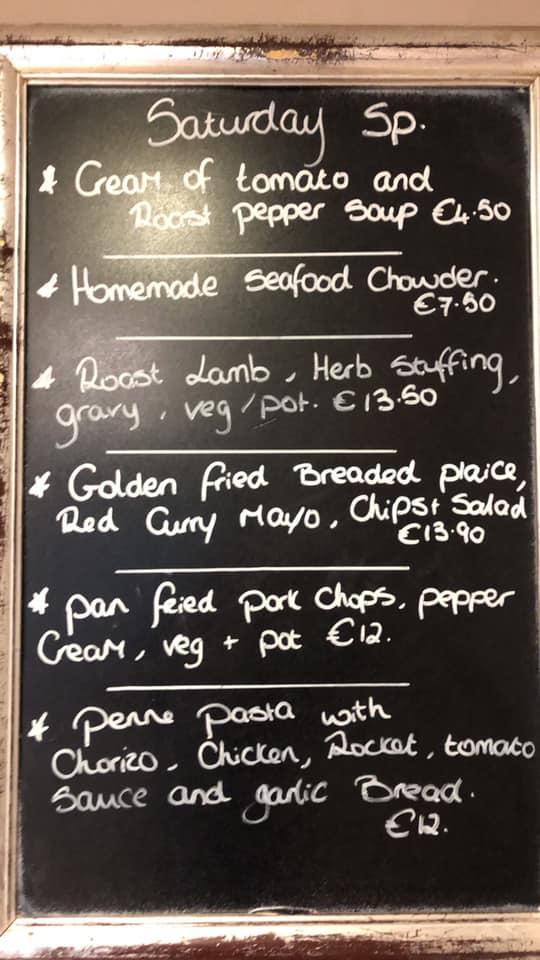 Saturday Sp.
* Cream of tomato and
Roast pepper Soup €4.50
* Homemade Seafood Chowder.
€7.50
* Roast Lamb, Herb Stuffing,
gravy, veg/pot. €13.50
* Golden fried Breaded plaice,
Red Curry Mayo, Chips+ Salad
€13.90
* pan feied pork chops, pepper
Cream, veg + pot €12.
* Penne Pasta with
Chorizo, Chicken, Rocket, tomato
Sauce and garlic Bread.
€12.